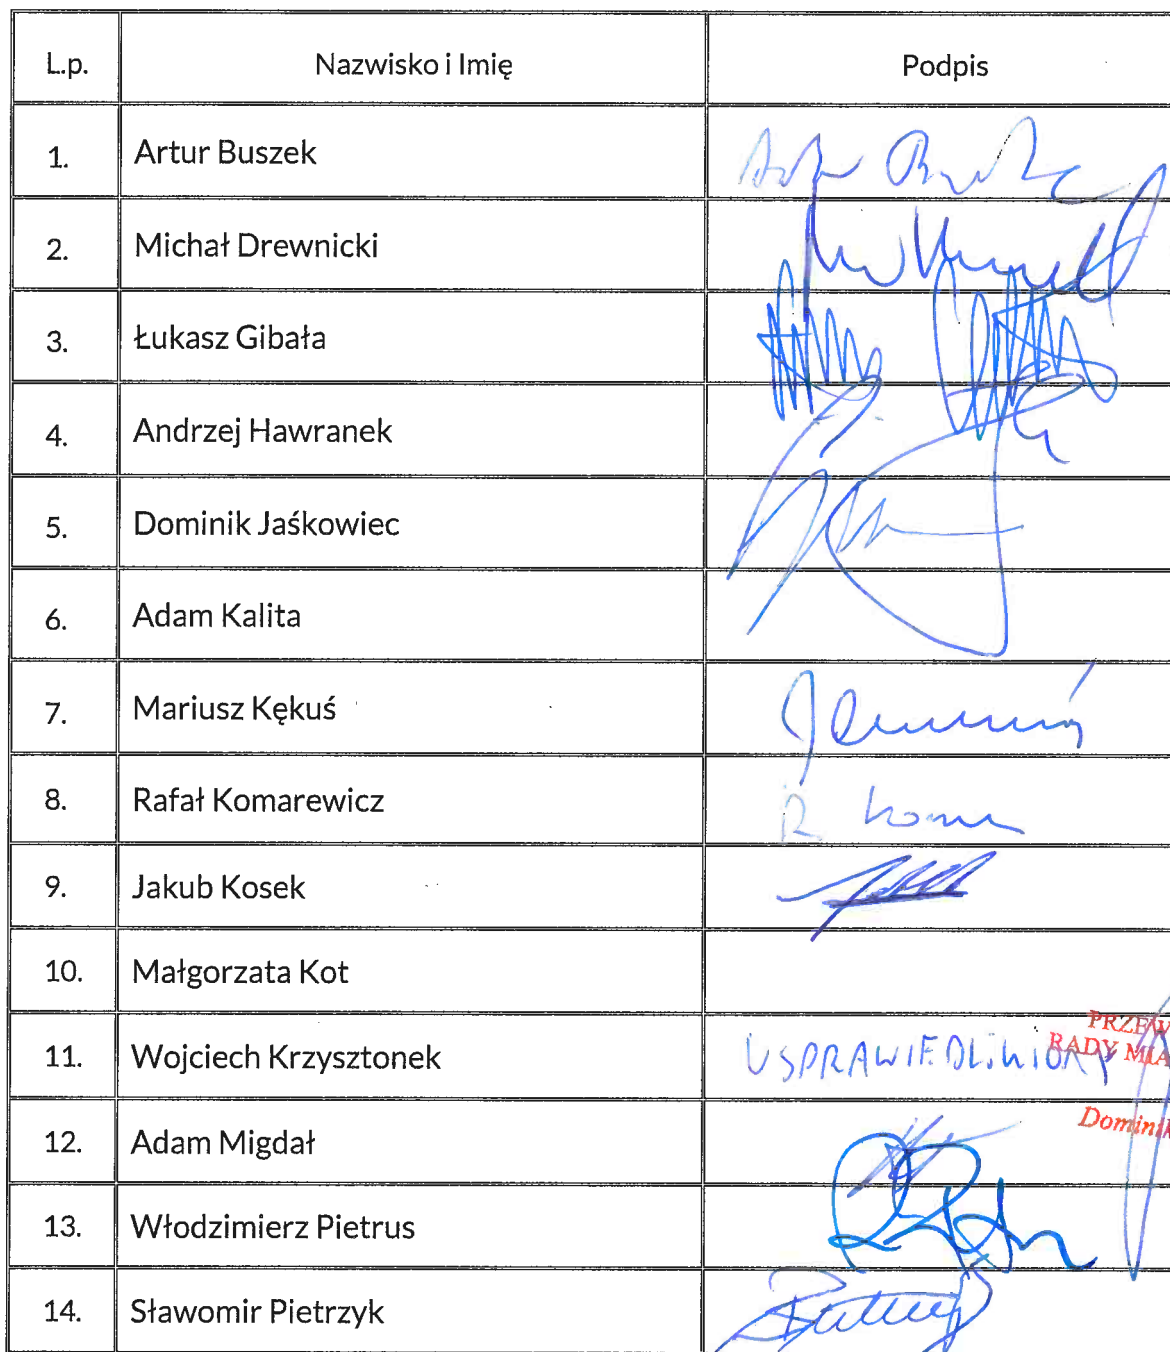 L.p. Nazwisko i Imię Podpis
1. Artur Buszek
2. Michał Drewnicki
3. Łukasz Gibała
4. Andrzej Hawranek
5. Dominik Jaśkowiec
6. Adam Kalita
7. Mariusz Kękuś
8. Rafał Komarewicz
9. Jakub Kosek
10. Małgorzata Kot
PRZEW
11. Wojciech Krzysztonek USPRAWIEDLIWIONY RADY MIA
Dominik
12. Adam Migdał
13. Włodzimierz Pietrus
14. Sławomir Pietrzyk